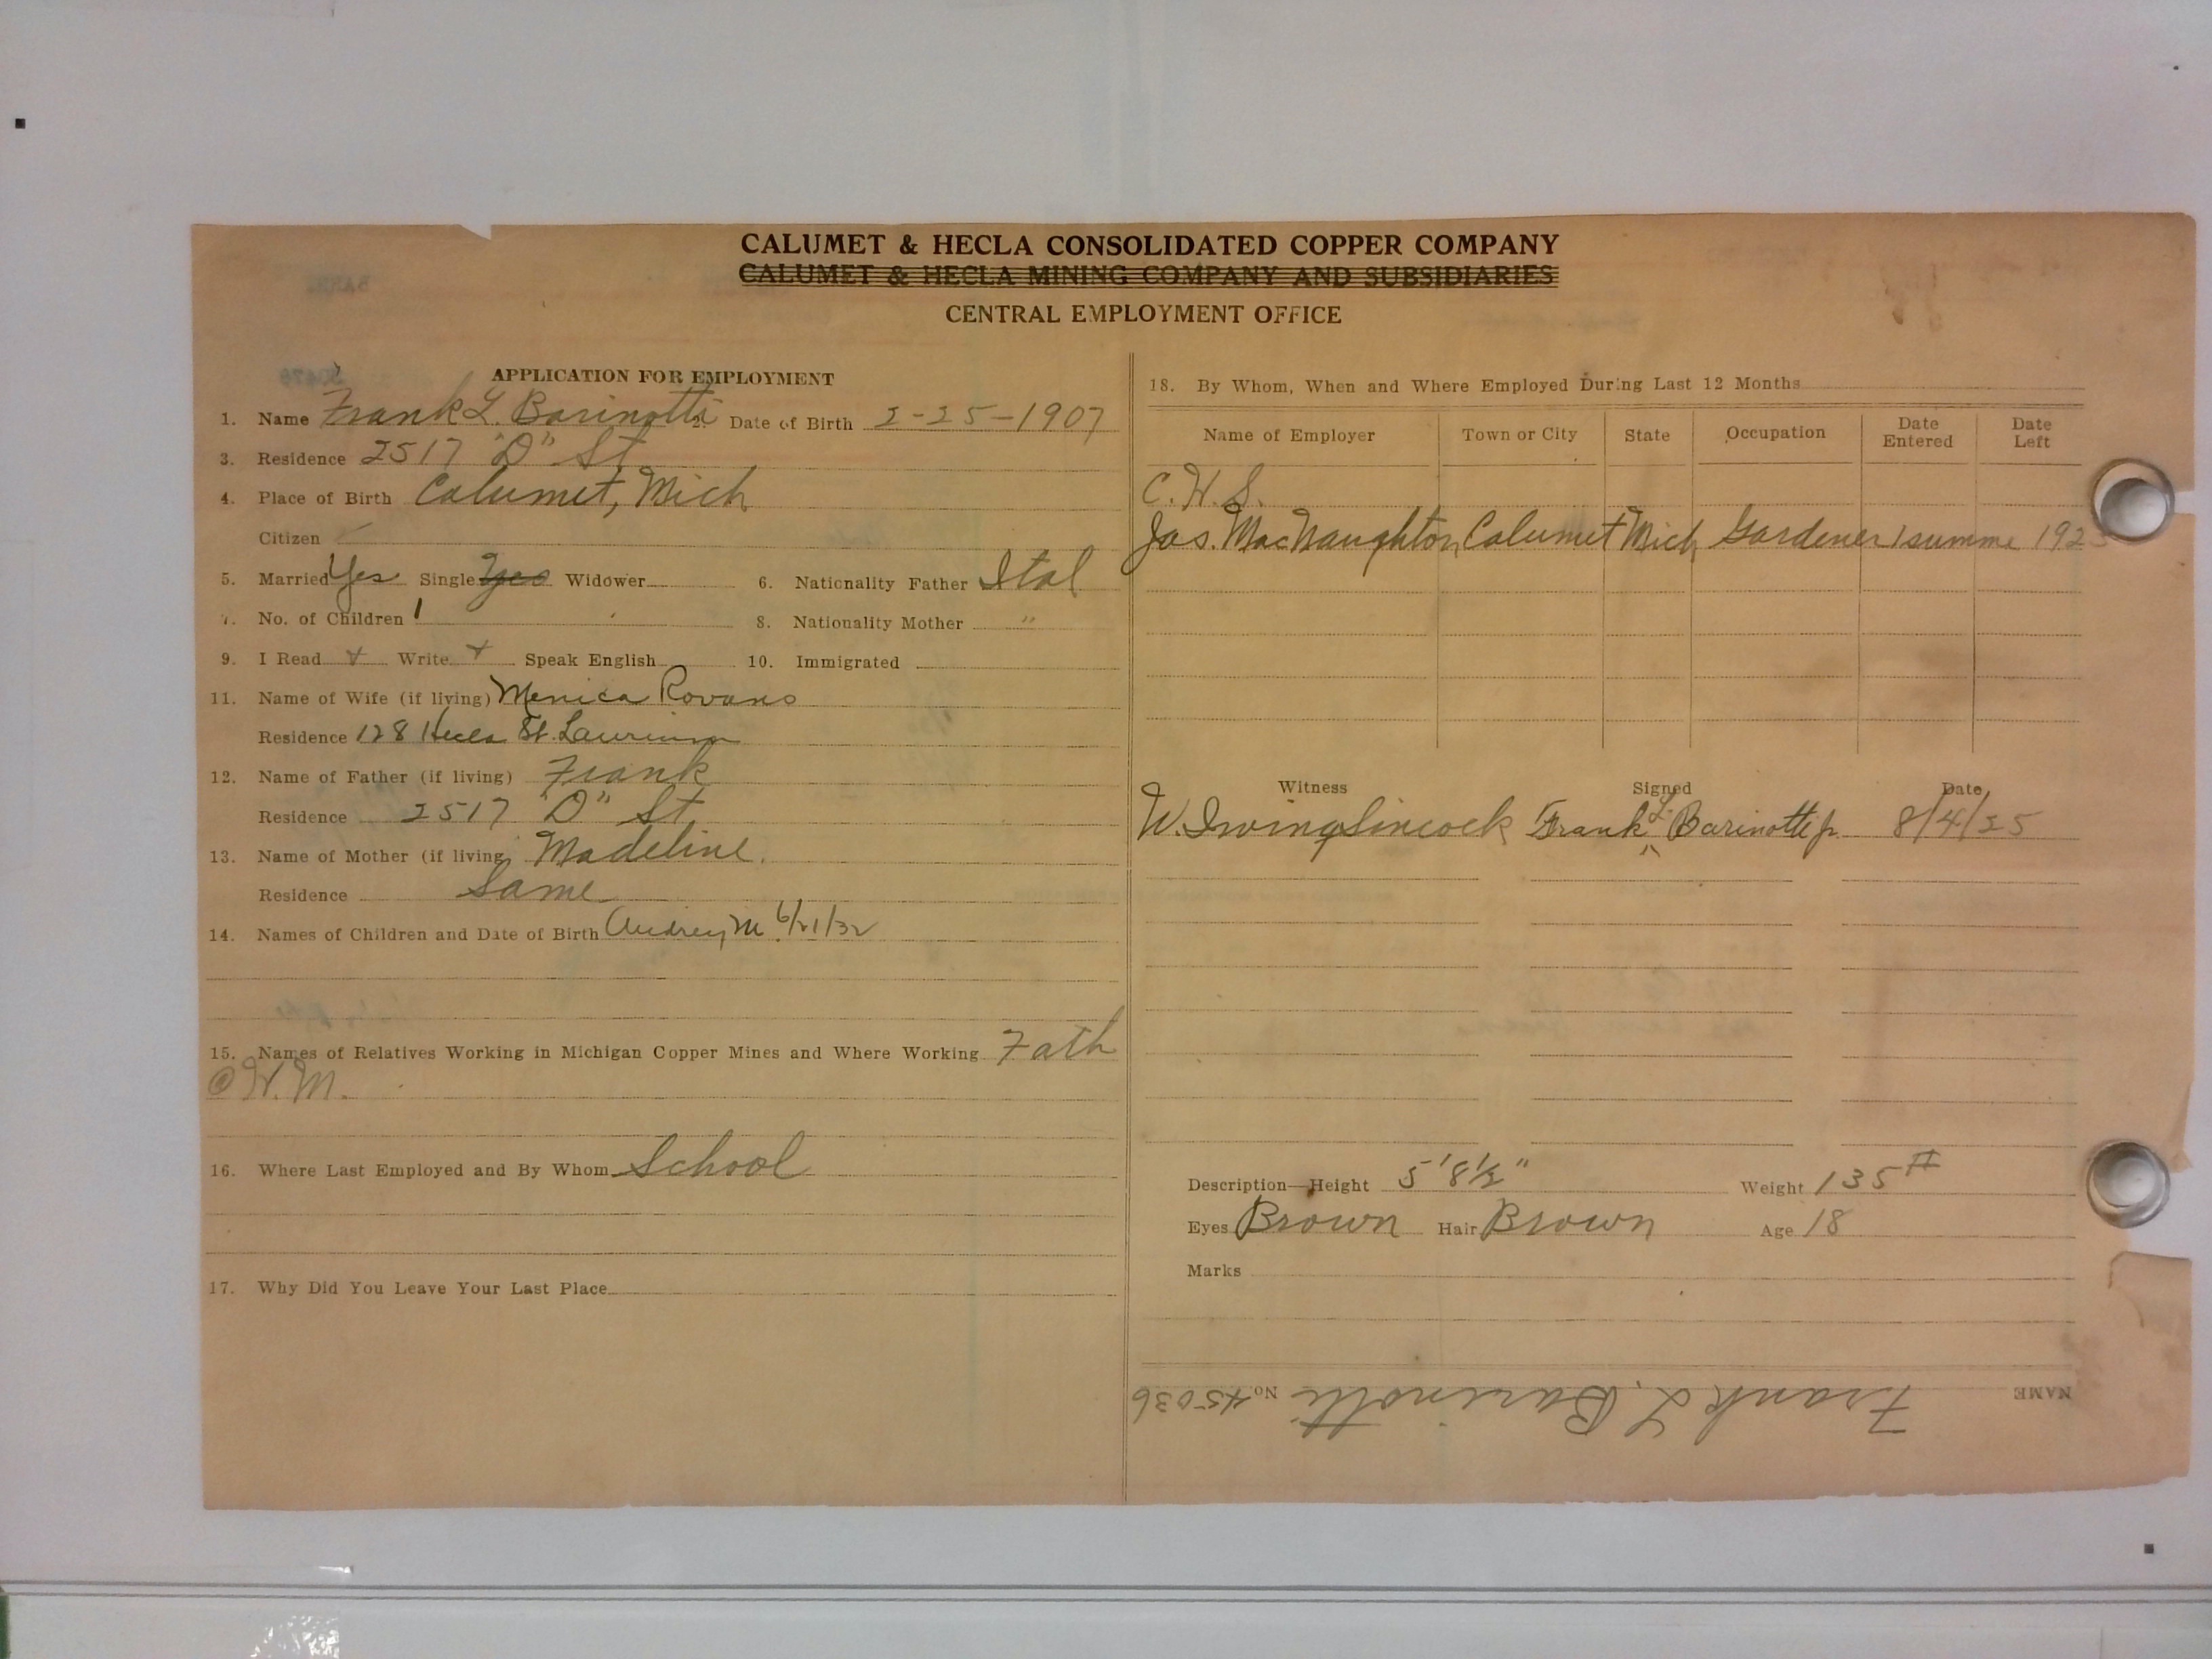 CALUMET & HECLA CONSOLIDATED COPPER COMPANY
CALUMET & HECLA MINING COMPANY AND SUBSIDIARIES
CENTRAL EMPLOYMENT OFFICE
APPLICATION FOR EMPLOYMENT
1. Name Frank L. Barinotti 2. Date of Birth 2-25-1907
3. Residence 2517 "D" St
4. Place of Birth Calumet, Mich
Citizen
5. Married Yes Single Yes Widower 6. Nationality Father Ital
7. No. of Children 1 8. Nationality Mother "
9. I Read + Write + Speak English 10. Immigrated
11. Name of Wife (if living) Menica Rovano
Residence 128 Hecla St. Laurium
12. Name of Father (if living) Frank
Residence 2517 "D" St
13. Name of Mother (if living) Madeline.
Residence Same
14. Names of Children and Date of Birth Audrey M 6/21/32
15. Names of Relatives Working in Michigan Copper Mines and Where Working Fath
@ H.M.
16. Where Last Employed and By Whom School
17. Why Did You Leave Your Last Place
18. By Whom, When and Where Employed During Last 12 Months
Name of Employer Town or City State Occupation Date Entered Date Left
C.H.S.
Jas. MacNaughton Calumet Mich Gardener 1 summe
Witness Signed Date
W. Irving Sincock Frank L. Barinotti jr. 8/4/25
Description—Height 5' 8 1/2" Weight 135 #
Eyes Brown Hair Brown Age 18
Marks
NAME Frank L. Barinotti No. 45036